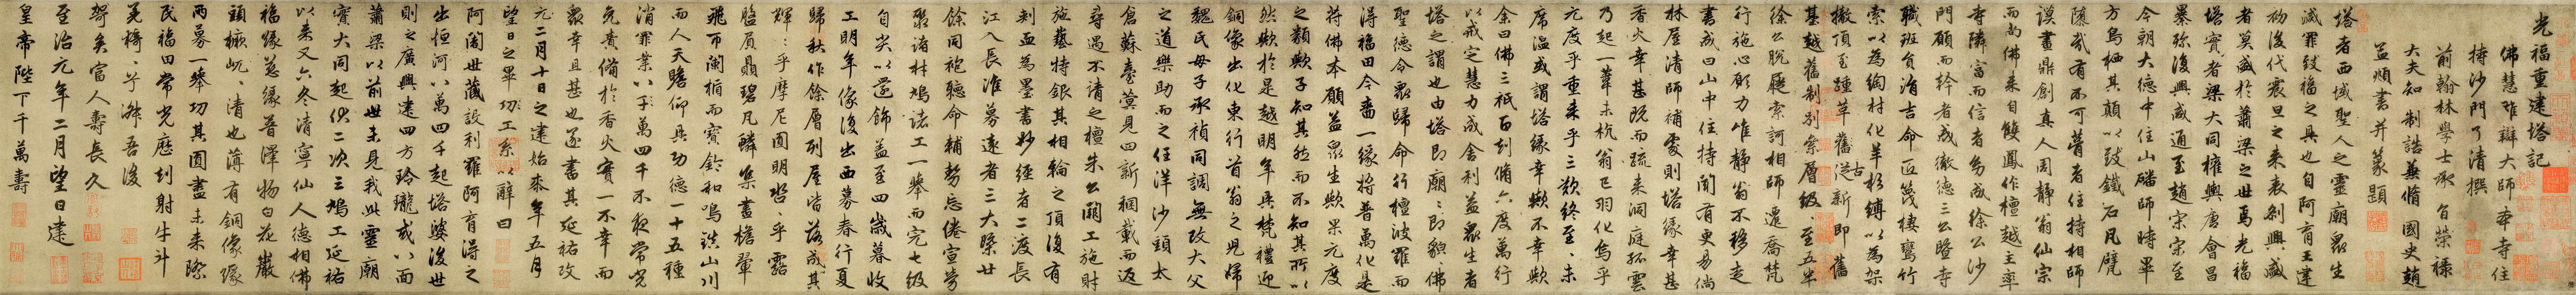 光福重建塔記
佛慧雄辯大師奉寺住
持沙門了清撰
前翰林學士承旨榮祿
大夫知制誥兼脩國史趙
孟頫書并篆題
塔者西域聖人之靈廟衆生
滅罪致福之具也自阿育王建
初後代震旦之来表創興盛
者莫盛於蕭梁之世焉光福
塔實者梁大同權輿唐會昌
業殄復興咸通至趙宋宋至
今朝大德中住山磻師時畢
方鳥栖其顛以致鐵石凡甓
隳㢤有不可瞢者住持相師
謨畫鼎創真人周静翁仙宗
而尚佛来自雙鳳作檀越主率
寺隣富而信者易成徐公沙
門願而幹者成徹德三公暨寺
職班負海吉命匠篾棲鸞竹
索以為綯材化羊杉縛以為架
撤頂至踵草舊従新即舊
基越舊制別索層級至五年
徐公脱屣索訶相師遷喬梵
行施心願力惟静翁不移走
書成曰山中住持闕有更易倘
林屋清師補處則塔緣幸甚
香火幸甚既而疏来洞庭孤雲
乃起一葦未杭翁已羽化烏乎
元度乎重来乎三歎終至未
席温或謂塔緣幸歟不幸歟
余曰佛三祇百刧脩六度萬行
以戒定慧力成舍利益衆生者
塔之謂也由塔即廟廟即貌佛
聖德令衆歸命行檀波羅而
淂福田今畵一緣将普萬化是
符佛本願益衆生歟果元度
之類歟予知其然而不知其所以
然歟於是越明年具梵禮迎
銅像出化東行首翁之児婦
魏氏母子承禎同調無改大父
之道樂助而之任洋沙頭太
倉蘇臺蓂見四新稠載而返
尋遇不請之檀朱公闢工施財
施藝特銀其相輪之頂復有
刺血為墨書妙經者二渡長
江入長淮募遠者三大檠廿
餘同袍聽命輔勢忘倦宣勞
聚諸材鳩諸工一舉而完七级
自尖以還飾益至四嵗暮收
工明年像復出西募春行夏
歸秋作餘層列屋皆落成其
輝輝乎摩尼圓明㲽㲽乎露
盤屓贔碧凡鱗集畫檐翬
飛而闌楯而寳鈴和鳴鎮山川
而人天瞻仰具功德一十五種
消罪業以于萬四千不夜常光
免責備於香火實一不幸而
衆幸且甚也遂書其延祐改
元二月十日之建始来年五月
望日之畢功工系以辭曰
阿闍世蔵設利羅阿育淂之
出恒河八萬四千起塔婆後世
則之廣興建四方玲瓏或八面
蕭梁以前世未見我此靈廟
寶大同起仆二次三鳩工延祐
以来又六冬清寧仙人德相佛
福緣慈緣普澤物白花巖
頭橛屼屼清也薄有銅像隊
兩募一舉功其圓盡未来際
民福田常光歷刧射牛斗
羌檹兮舞吾後
智矣富人壽長久
至治元年二月望日建
皇帝陛下千萬壽